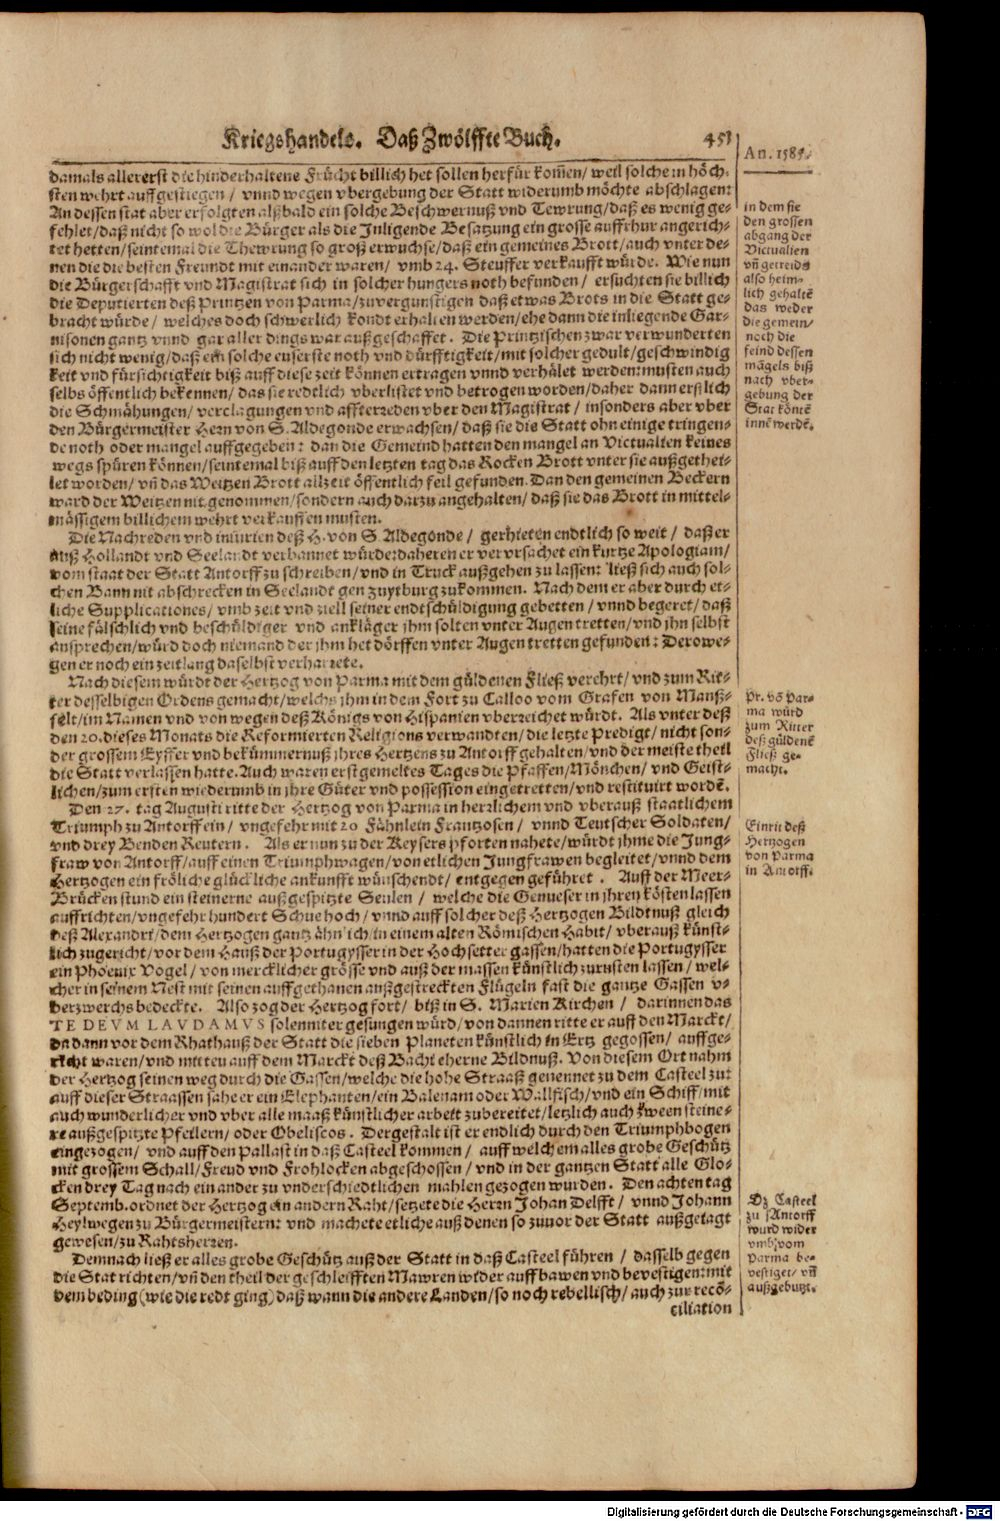 Kriegshandels. Daß Zwölffte Buch. 453
An. 1585.
damals allererst die hinderhaltene Frücht billich het sollen herfür kom̃en/ weil solche in höch-
sten wehrt auffgestiegen/ vnnd wegen vbergebung der Statt widerumb möchte abschlagen:
An dessen stat aber erfolgten alßbald ein solche Beschwernuß vnd Tewrung/daß es wenig ge-
fehlet/daß nicht so wol die Bürger als die Inligende Besatzung ein grosse auffrhur angerich-
tet hetten/seintemal die Thewrung so groß erwuchse/daß ein gemeines Brott/auch vnter de-
nen die die besten Freundt mit einander waren/ vmb 24. Steuffer verkaufft würde. Wie nun
die Bürgerschafft vnd Magistrat sich in solcher hungers noth befunden/ ersuchten sie billich
die Deputierten deß Printzen von Parma/zuvergunstigen daß etwas Brots in die Statt ge-
bracht würde/ welches doch schwerlich kondt erhalten werden/ehe dann die inliegende Gar-
nisonen gantz vnnd gar aller dings war außgeschaffet. Die Printzischen zwar verwunderten
sich nicht wenig/daß ein solche eusserste noth vnd dürfftigkeit/mit solcher gedult/geschwindig
keit vnd fürsichtigkeit biß auff diese zeit können ertragen vnnd verhälet werden: musten auch
selbs öffentlich bekennen/ das sie redtlich vberlistet vnd betrogen worden/daher dann erstlich
die Schmähungen/ verclagungen vnd affterreden vber den Magistrat/ insonders aber vber
den Bürgermeister Hern von S. Aldegonde erwachsen/ daß sie die Statt ohn einige tringen-
de noth oder mangel auffgegeben: dan die Gemeind hatten den mangel an Victualien keines
wegs spüren können/seintemal biß auff den letzten tag das Rocken Brott vnter sie außgethei-
let worden/ vñ das Weitzen Brott allzeit öffentlich feil gefunden. Dan den gemeinen Beckern
ward der Weitzen nit genommen/sondern auch darzu angehalten/ daß sie das Brott in mittel-
mässigem billichem wehrt verkauffen musten.
in dem sie
den grossen
abgang der
Victualien
vñ getreids
also heim-
lich gehaltẽ
das weder
die gemein/
noch die
feind dessen
mägels biß
nach vber-
gebung der
Stat köntẽ
innẽ werdẽ.
Die Nachreden vnd iniurien deß H. von S. Aldegonde/ gerhieten endtlich so weit/ daß er
auß Hollandt vnd Seelandt verbannet würde: daheren er vervrsachet ein kurtze Apologiam/
vom staat der Statt Antorff zu schreiben/ vnd in Truck außgehen zu lassen: ließ sich auch sol-
chen Bann nit abschrecken in Seelandt gen Zuytburg zukommen. Nach dem er aber durch et-
liche Supplicationes/ vmb zeit vnd ziell seiner endtschüldigung gebetten/ vnnd begeret/ daß
seine fälschlich vnd beschüldiger vnd ankläger jhm solten vnter Augen tretten/ vnd jhn selbst
ansprechen/würd doch niemand der jhm het dörffen vnter Augen tretten gefunden: Derowe-
gen er noch ein zeitlang daselbst verharrete.
Nach diesem würdt der Hertzog von Parma mit dem güldenen Fließ verehrt/ vnd zum Rit-
ter desselbigen Ordens gemacht/ welchs jhm in dem Fort zu Calloo vom Grafen von Manß-
felt/im Namen vnd von wegen deß Königs von Hispanien vberreichet würdt. Als vnter deß
den 20. dieses Monats die Reformierten Religions verwandten/ die letzte Predigt/ nicht son-
der grossem Eyffer vnd bekümmernuß jhres Hertzens zu Antorff gehalten/ vnd der meiste theil
die Statt verlassen hatte. Auch waren erst gemeltes Tages die Pfaffen/Mönchen/ vnd Geist-
lichen/zum ersten wiederumb in jhre Güter vnd possession eingetretten/vnd restituirt wordẽ.
Pr. võ Par-
ma würd
zum Ritter
deß güldenẽ
Fließ ge-
macht.
Den 27. tag Augusti ritte der Hertzog von Parma in herrlichem vnd vberauß staatlichem
Triumph zu Antorff ein/ vngefehr mit 20 Fähnlein Frantzosen/ vnnd Teutscher Soldaten/
vnd drey Benden Reutern. Als er nun zu der Keysers pforten nahete/ würdt jhme die Jung-
fraw von Antorff/ auff einen Triumphwagen/ von etlichen Jungfrawen begleitet/ vnnd dem
Hertzogen ein fröliche glückliche ankunfft wünschendt/ entgegen geführet. Auff der Meer-
Brücken stund ein steinerne außgespitzte Seulen/ welche die Genueser in jhren kösten lassen
auffrichten/vngefehr hundert Schue hoch/ vnnd auff solcher deß Hertzogen Bildtnuß gleich
deß Alexandri/ dem Hertzogen gantz ähnlich/in einem alten Römischen Habit/ vberauß künst-
lich zugericht/ vor dem Hauß der Portugysser in der Hochsetter gassen/hatten die Portugysser
ein Phoenix Vogel/ von mercklicher grösse vnd auß der massen künstlich zurusten lassen/ wel-
cher in seinem Nest mit seinen auffgethanen außgestreckten Flügeln fast die gantze Gassen v-
berzwerchs bedeckte. Also zog der Hertzog fort/ biß in S. Marien Kirchen/ darinnen das
TE DEVM LAVDAMVS solenniter gesungen würd/ von dannen ritte er auff den Marckt/
da dann vor dem Rhathauß der Statt die sieben Planeten künstlich in Ertz gegossen/ auffge-
richt waren/vnd mitten auff dem Marckt deß Bachi eherne Bildnuß. Von diesem Ort nahm
der Hertzog seinen weg durch die Gassen/welche die hohe Straaß genennet zu dem Casteel zu:
auff dieser Straassen sahe er ein Elephanten/ ein Balenam oder Wallfisch/ vnd ein Schiff/ mit
auch wunderlicher vnd vber alle maaß künstlicher arbeit zubereitet/letzlich auch zween steine-
re außgespitzte Pfeilern/ oder Obeliscos. Dergestalt ist er endlich durch den Triumphbogen
eingezogen/ vnd auff den Pallast in daß Casteel kommen/ auff welchem alles grobe Geschütz
mit grossem Schall/Freud vnd Frohlocken abgeschossen/ vnd in der gantzen Statt alle Glo-
cken drey Tag nach einander zu vnderschiedtlichen mahlen gezogen wurden. Den achten tag
Septemb. ordnet der Hertzog ein andern Raht/ setzete die Herrn Johan Delfft/ vnnd Johann
Heylwegen zu Bürgermeistern: vnd machete etliche auß denen so zuvor der Statt außgetagt
gewesen/zu Rahtsherren.
Einrit deß
Hertzogen
von Parma
in Antorff.
Demnach ließ er alles grobe Geschütz auß der Statt in daß Casteel führen/ dasselb gegen
die Stat richten/ vñ den theil der geschleifften Mawren wider auffbawen vnd bevestigen: mit
dem beding (wie die redt ging) daß wann die andere Landen/ so noch rebellisch/ auch zur recõ-
ciliation
Dz Casteel
zu Antorff
wurd wider
vmb vom
Parma be-
vestiget/ vñ
außgebutzt.
Digitalisierung gefördert durch die Deutsche Forschungsgemeinschaft - DFG